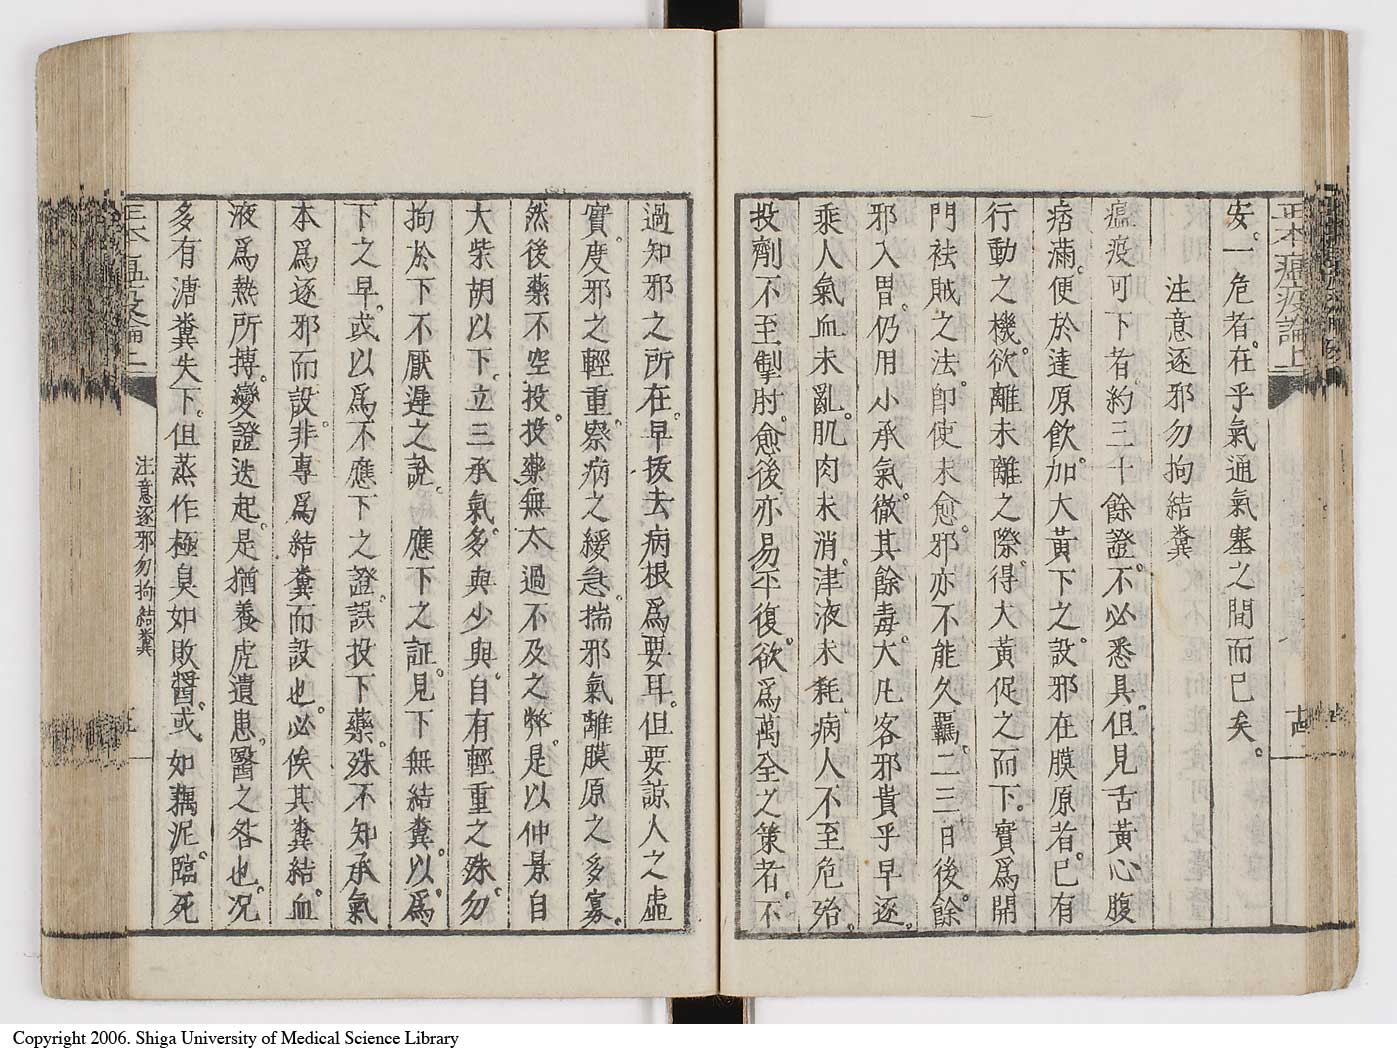 正本瘟疫論上
十四
安。一危者。在乎氣通氣塞之間而已矣。
注意逐邪勿拘結糞。
瘟疫可下者。約三十餘證。不必悉具。但見舌黃心腹
痞滿。便於達原飮。加大黃下之。設邪在膜原者。已有
行動之機。欲離未離之際。得大黃促之而下。實爲開
門袪賊之法。卽使未愈。邪亦不能久羈。二三日後。餘
邪入胃。仍用小承氣。徹其餘毒。大凡客邪貴乎早逐。
乘人氣血未亂。肌肉未消。津液未耗。病人不至危殆。
投劑不至掣肘。愈後亦易平復。欲爲萬全之策者。不
過知邪之所在。早拔去病根爲要耳。但要諒人之虛
實。度邪之輕重。察病之緩急。揣邪氣離膜原之多寡。
然後藥不空投。投藥無太過不及之弊。是以仲景自
大柴胡以下。立三承氣。多與少與。自有輕重之殊。勿
拘於下不厭遲之說。應下之証。見下無結糞。以爲
下之早。或以爲不應下之證。誤投下藥。殊不知承氣
本爲逐邪而設。非專爲結糞而設也。必俟其糞結。血
液爲熱所搏。變證迭起。是猶養虎遺患。醫之咎也。况
多有溏糞失下。但蒸作極臭如敗醬。或如藕泥。臨死
注意逐邪勿拘結糞
Copyright 2006. Shiga University of Medical Science Library